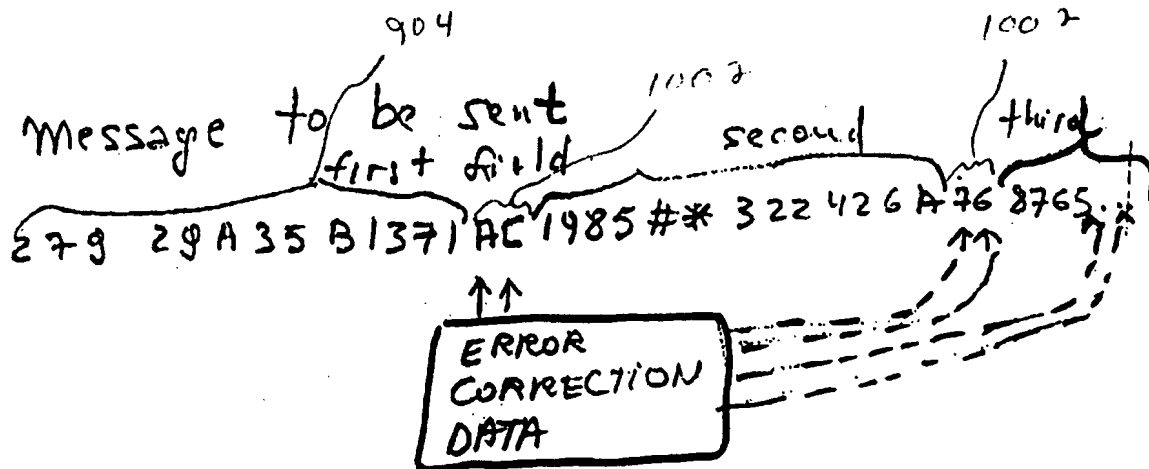 904
1002
1002
Message to be sent
first field
second
third
279 29A35B1371AC1985#* 322426A768765
ERROR
CORRECTION
DATA